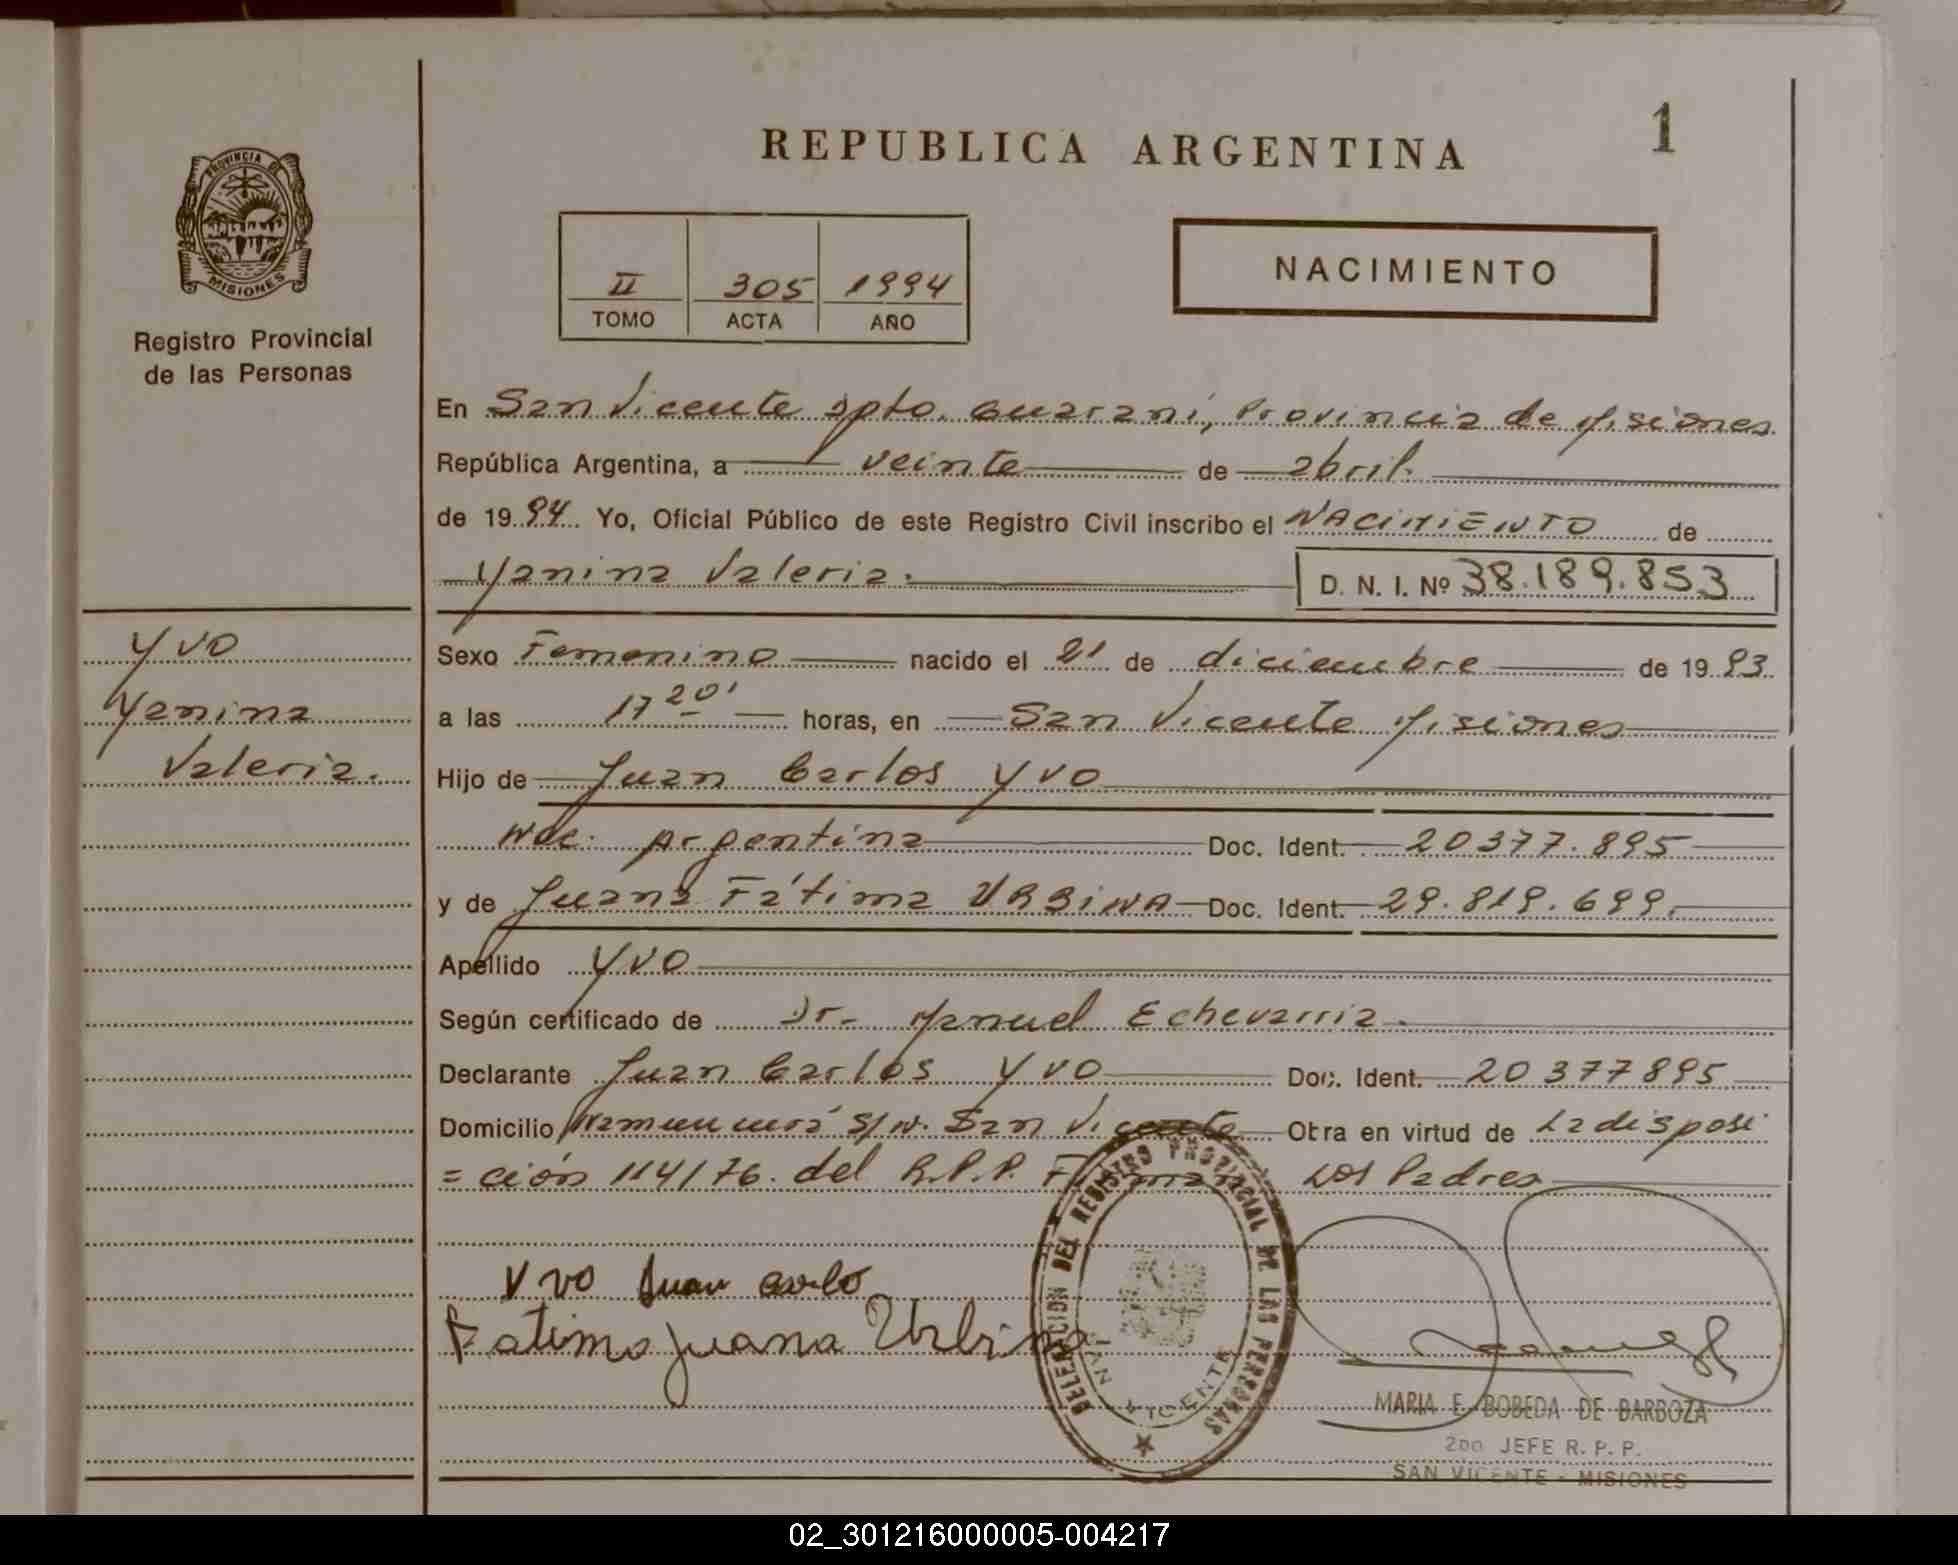 REPUBLICA ARGENTINA
1
PROVINCIA DE
MISIONES
Registro Provincial
de las Personas
II 305 1994
TOMO ACTA AÑO
NACIMIENTO
En San Vicente Dpto. Guaraní, Provincia de Misiones
República Argentina, a veinte de abril.
de 1994 Yo, Oficial Público de este Registro Civil inscribo el NACIMIENTO de
Yanina Valeria. D. N. I. Nº 38.189.853
Yvo
Yanina
Valeria.
Sexo Femenino nacido el 21 de diciembre de 1993
a las 17 20' horas, en San Vicente Misiones
Hijo de Juan Carlos Yvo
Nac. Argentina Doc. Ident. 20377.895
y de Juana Fátima URBINA Doc. Ident. 29.819.699.
Apellido Yvo
Según certificado de Dr. Manuel Echevarria.
Declarante Juan Carlos Yvo Doc. Ident. 20377895
Domicilio s/n. San Vicente Otra en virtud de La disposi
= ción 114/76. del R.P.P. Firman Los Padres
Yvo Juan carlo
Fatima Juana Urbina
DELEGACION DEL REGISTRO PROVINCIAL DE LAS PERSONAS
SAN VICENTE
MARIA E. BOBEDA DE BARBOZA
2DO JEFE R. P. P.
SAN VICENTE - MISIONES
02_301216000005-004217